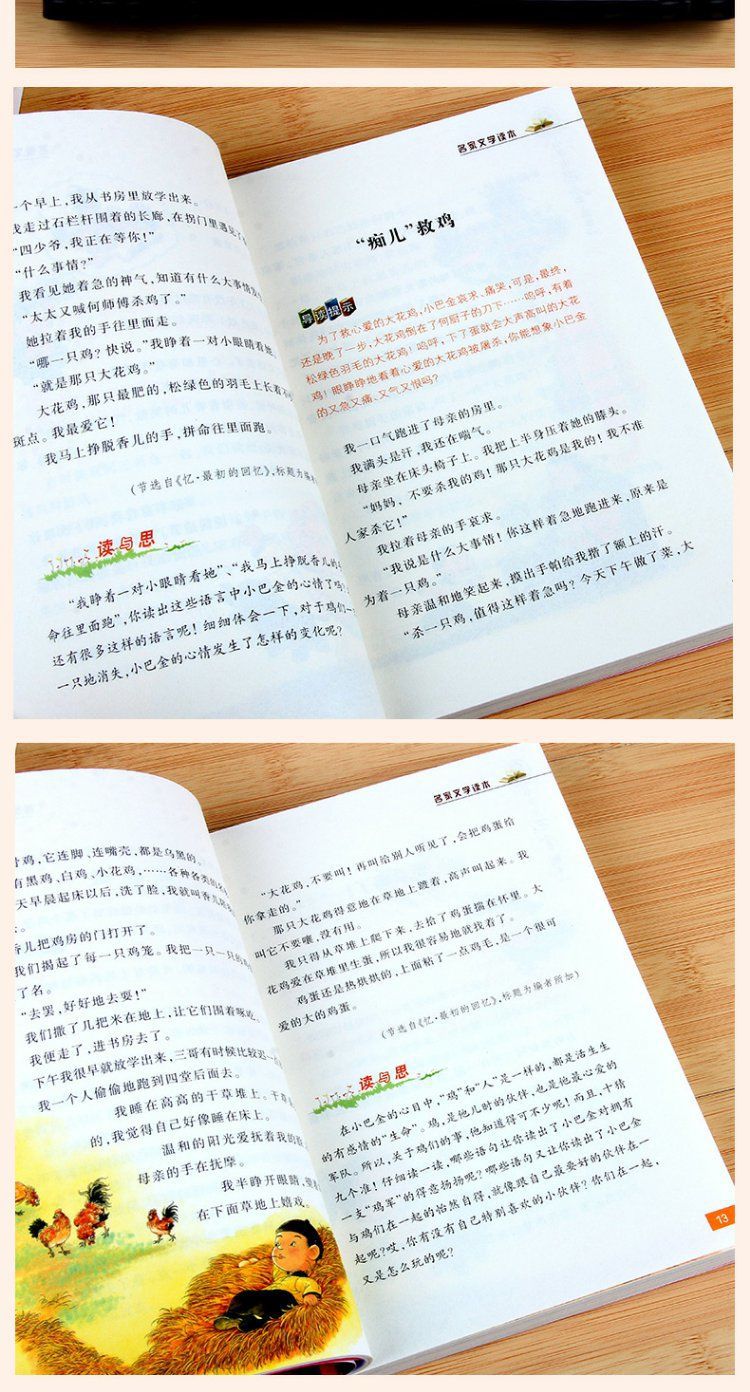 一个早上,我从书房里放学出来。
我走过石栏杆围着的长廊,在拐门里遇见了
“四少爷,我正在等你!”
“什么事情?”
我看见她着急的神气,知道有什么大事情发生
“太太又喊何师傅杀鸡了。”
她拉着我的手往里面走。
“哪一只鸡?快说。”我睁着一对小眼睛看她。
“就是那只大花鸡。”
大花鸡,那只最肥的,松绿色的羽毛上长着不
斑点。我最爱它!
我马上挣脱香儿的手,拼命往里面跑。
(节选自《忆·最初的回忆》,标题为编
读与思
“我睁着一对小眼睛看她”、“我马上挣脱香儿的
命往里面跑”,你读出这些语言中小巴金的心情了吗?
还有很多这样的语言呢!细细体会一下,对于鸡们一
一只地消失,小巴金的心情发生了怎样的变化呢?
名家文学读本
“痴儿”救鸡
导读提示
为了救心爱的大花鸡,小巴金哀求、痛哭,可是,最终,
还是晚了一步,大花鸡倒在了何厨子的刀下……呜呼,有着
松绿色羽毛的大花鸡!呜呼,下了蛋就会大声高叫的大花
鸡!眼睁睁地看着心爱的大花鸡被屠杀,你能想象小巴金
的又急又痛、又气又恨吗?
我一口气跑进了母亲的房里。
我满头是汗,我还在喘气。
母亲坐在床头椅子上。我把上半身压着她的膝头。
“妈妈,不要杀我的鸡!那只大花鸡是我的!我不准
人家杀它!”
我拉着母亲的手哀求。
“我说是什么大事情!你这样着急地跑进来,原来是
为着一只鸡。”
母亲温和地笑起来,摸出手帕给我揩了额上的汗。
“杀一只鸡,值得这样着急吗?今天下午做了菜,大
骨鸡,它连脚、连嘴壳,都是乌黑的。
有黑鸡、白鸡、小花鸡,……各种各类的
天早晨起床以后,洗了脸,我就叫香儿陪
香儿把鸡房的门打开了。
我们揭起了每一只鸡笼。我把一只一只的
了名。
“去罢,好好地去耍!”
我们撒了几把米在地上,让它们围着啄吃。
我便走了,进书房去了。
下午我很早就放学出来,三哥有时候比较迟一
我一个人偷偷地跑到四堂后面去。
我睡在高高的干草堆上。干草
的,我觉得自己好像睡在床上。
温和的阳光爱抚着我的
母亲的手在抚摩。
我半睁开眼睛,
在下面草地上嬉戏。
名家文学读本
“大花鸡,不要叫!再叫给别人听见了,会把鸡蛋给
你拿走的。”
那只大花鸡得意地在草地上踱着,高声叫起来。我
叫它不要嚷,没有用。
我只得从草堆上爬下来,去拾了鸡蛋揣在怀里。大
花鸡爱在草堆里生蛋,所以我很容易地就找着了。
鸡蛋还是热烘烘的,上面粘了一点鸡毛,是一个很可
爱的大的鸡蛋。
(节选自《忆·最初的回忆》,标题为编者所加)
读与思
在小巴金的心目中,“鸡”和“人”是一样的,都是活生生
的有感情的“生命”。鸡,是他儿时的伙伴,也是他最心爱的
军队。所以,关于鸡们的事,他知道得可不少呢!而且,十情
九个准!仔细读一读,哪些语句让你读出了小巴金对拥有
一支“鸡军”的得意扬扬呢?哪些语句又让你读出了小巴金
与鸡们在一起的怡然自得,就像跟自己最要好的伙伴在一
起呢?哎,你有没有自己特别喜欢的小伙伴?你们在一起,
又是怎么玩的呢?
13